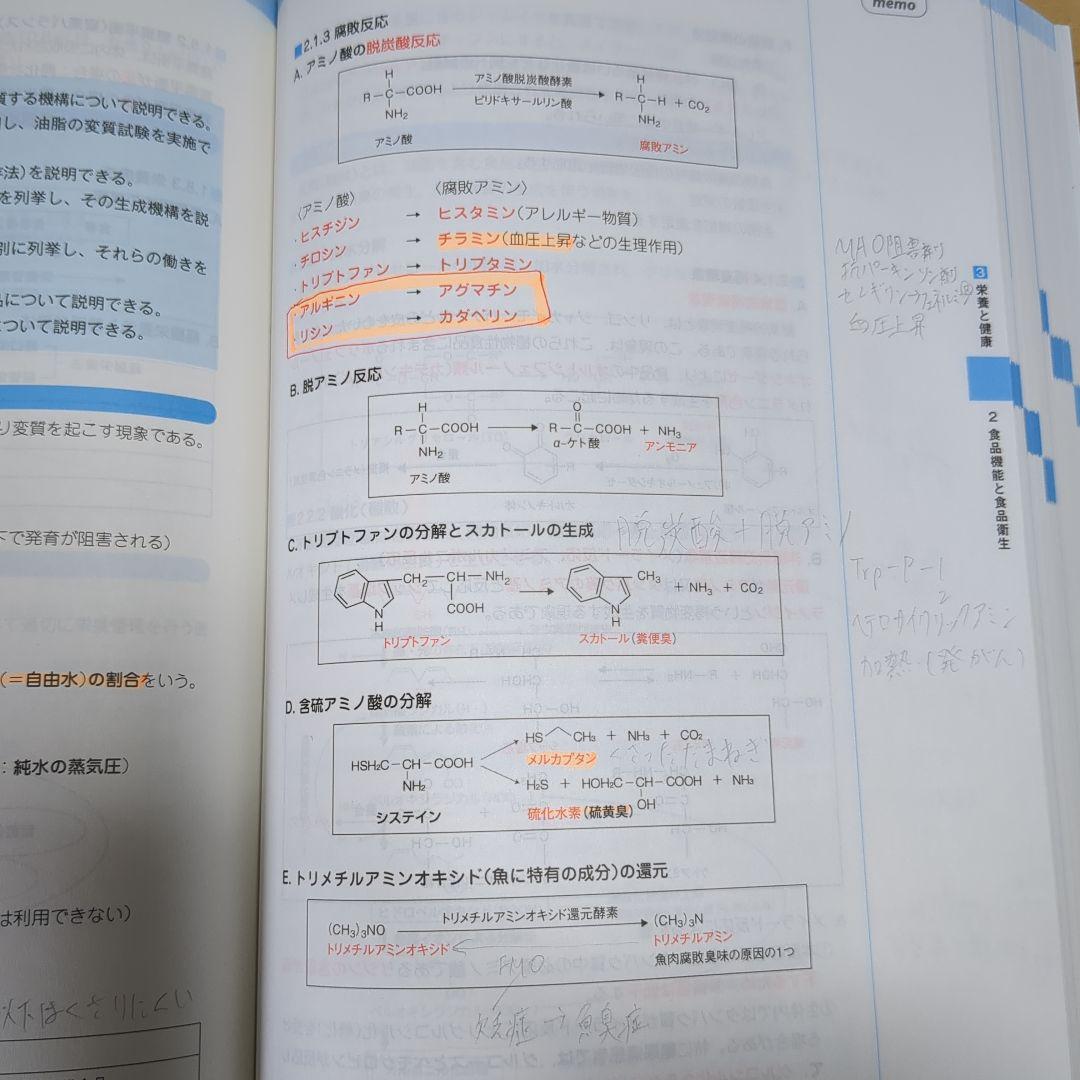 memo
質する機構について説明できる。
し、油脂の変質試験を実施で
法)を説明できる。
を列挙し、その生成機構を説
別に列挙し、それらの働きを
品について説明できる。
について説明できる。
り変質を起こす現象である。
下で発育が阻害される)
(=自由水)の割合をいう。
:純水の蒸気圧)
は利用できない)
以下はくさりにくい
■2.1.3 腐敗反応
A. アミノ酸の脱炭酸反応
H
R-C-COOH
NH₂
アミノ酸
アミノ酸脱炭酸酵素
ピリドキサールリン酸
H
R-C-H + CO₂
NH₂
腐敗アミン
〈アミノ酸〉 〈腐敗アミン〉
・ヒスチジン → ヒスタミン(アレルギー物質)
・チロシン → チラミン(血圧上昇などの生理作用)
・トリプトファン → トリプタミン
・アルギニン → アグマチン
・リシン → カダベリン
MAO阻害剤
抗パーキンソン剤
血圧上昇
3 栄養と健康
2 食品機能と食品衛生
B. 脱アミノ反応
H
R-C-COOH
NH₂
アミノ酸
O
R-C-COOH + NH₃
α-ケト酸 アンモニア
C. トリプトファンの分解とスカトールの生成 脱炭酸+脱アミノ
CH₂-CH-NH₂
COOH
N
H
トリプトファン
CH₃
N
H
+ NH₃ + CO₂
スカトール(糞便臭)
Trp-P-1
2
ヘテロサイクリックアミン
加熱(発がん)
D. 含硫アミノ酸の分解
HSH₂C-CH-COOH
NH₂
システイン
HS CH₃ + NH₃ + CO₂
メルカプタン くさったたまねぎ
H₂S + HOH₂C-CH-COOH + NH₃
OH
硫化水素(硫黄臭)
E. トリメチルアミンオキシド(魚に特有の成分)の還元
(CH₃)₃NO
トリメチルアミンオキシド
トリメチルアミンオキシド還元酵素
(CH₃)₃N
トリメチルアミン
魚肉腐敗臭味の原因の1つ
FMO
欠損症→魚臭症